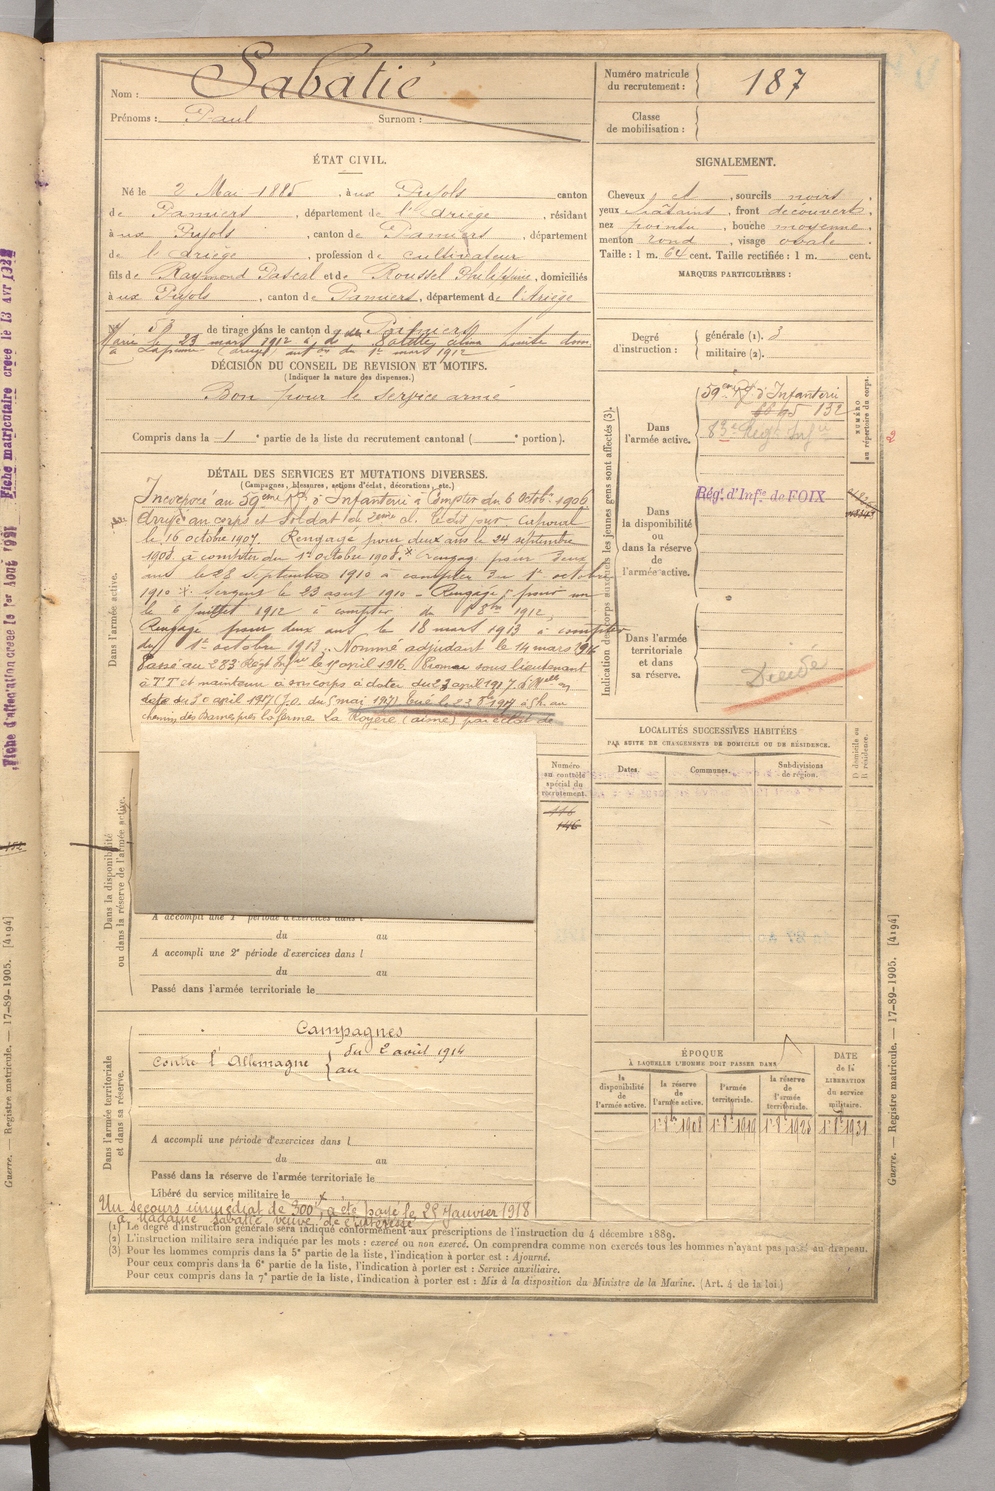 Nom : Sabatié
Prénoms : Paul Surnom :
Numéro matricule du recrutement : 187
Classe de mobilisation :
ÉTAT CIVIL.
Né le 2 Mai 1885, à ux Pujols canton
de Pamiers, département de l'Ariège, résidant
à ux Pujols, canton de Pamiers, département
de l'Ariège, profession de cultivateur
fils de Raymond Pascal et de Roussel, domiciliés
à ux Pujols, canton de Pamiers, département de l'Ariège
SIGNALEMENT.
Cheveux, sourcils noirs,
yeux châtains, front découvert,
nez pointu, bouche moyenne,
menton rond, visage ovale.
Taille : 1 m. 64 cent. Taille rectifiée : 1 m. cent.
MARQUES PARTICULIÈRES :
N° 50 de tirage dans le canton de Pamiers
Marié le 23 mars 1912 à
du 1er mars 1912
Degré d'instruction : générale (1). 3
militaire (2).
DÉCISION DU CONSEIL DE REVISION ET MOTIFS.
(Indiquer la nature des dispenses.)
Bon pour le service armé
Compris dans la 1e partie de la liste du recrutement cantonal ( e portion).
DÉTAIL DES SERVICES ET MUTATIONS DIVERSES.
(Campagnes, blessures, actions d'éclat, décorations, etc.)
Dans l'armée active.
Incorporé au 59eme Rgt d'Infanterie à compter du 6 octobre 1906
Arrivé au corps et soldat de 2eme cl. le dit jour. Caporal
le 16 octobre 1907. Rengagé pour deux ans le 24 septembre
1908 à compter du 1er octobre 1908. x rengagé pour deux
ans le 28 septembre 1910 à compter du 1er octobre
1910 x. Sergent le 23 aout 1910 – Rengagé pour un
le 6 juillet 1912 à compter du 1912,
Rengagé pour deux ans le 18 mars 1913 à compter
du 1er octobre 1913. Nommé adjudant le 14 mars 1916
Passé au 283 Régt Infie le 17 avril 1916. Promu sous lieutenant
à T.T. et maintenu à son corps à dater du 23 avril 1917.
date du 30 avril 1917 (J.O. du 5 mai 1917). Tué le 23 8bre 1917 à 5h. au
chemin des Dames près la ferme La Royère (aisne) par éclat de
Indication des corps auxquels les jeunes gens sont affectés (3).
NUMÉRO au répertoire du corps.
Dans l'armée active.
59eme Rgt d'Infanterie
132
83e Régt Infie
Dans la disponibilité ou dans la réserve de l'armée active.
Rég. d'Infie de FOIX
Dans l'armée territoriale et dans sa réserve.
Décédé
LOCALITÉS SUCCESSIVES HABITÉES
PAR SUITE DE CHANGEMENTS DE DOMICILE OU DE RÉSIDENCE.
Dates. Communes. Subdivisions de région. D domicile ou R résidence.
Numéro au contrôle spécial du recrutement.
146
Dans la disponibilité ou dans la réserve de l'armée active.
A accompli une 1re période d'exercices dans l
du au
A accompli une 2e période d'exercices dans l
du au
Passé dans l'armée territoriale le
Dans l'armée territoriale et dans sa réserve.
Campagnes
Contre l'Allemagne { du 2 août 1914
au
A accompli une période d'exercices dans l
du au
Passé dans la réserve de l'armée territoriale le
Libéré du service militaire le
Un secours immédiat de 300f a été payé le 25 Janvier 1918
à Madame Sabatié veuve de l'intéressé
ÉPOQUE
À LAQUELLE L'HOMME DOIT PASSER DANS
la disponibilité de l'armée active. la réserve de l'armée active. l'armée territoriale. la réserve de l'armée territoriale.
DATE de la LIBÉRATION du service militaire.
1er 8bre 1908 1er 8bre 1919 1er 8bre 1925 1er 8bre 1931
(1) Le degré d'instruction générale sera indiqué conformément aux prescriptions de l'instruction du 4 décembre 1889.
(2) L'instruction militaire sera indiquée par les mots : exercé ou non exercé. On comprendra comme non exercés tous les hommes n'ayant pas passé au drapeau.
(3) Pour les hommes compris dans la 5e partie de la liste, l'indication à porter est : Ajourné.
Pour ceux compris dans la 6e partie de la liste, l'indication à porter est : Service auxiliaire.
Pour ceux compris dans la 7e partie de la liste, l'indication à porter est : Mis à la disposition du Ministre de la Marine. (Art. 4 de la loi.)
Guerre. — Registre matricule. — 17-89-1905. [4194]
Guerre. — Registre matricule. — 17-89-1905. [4194]